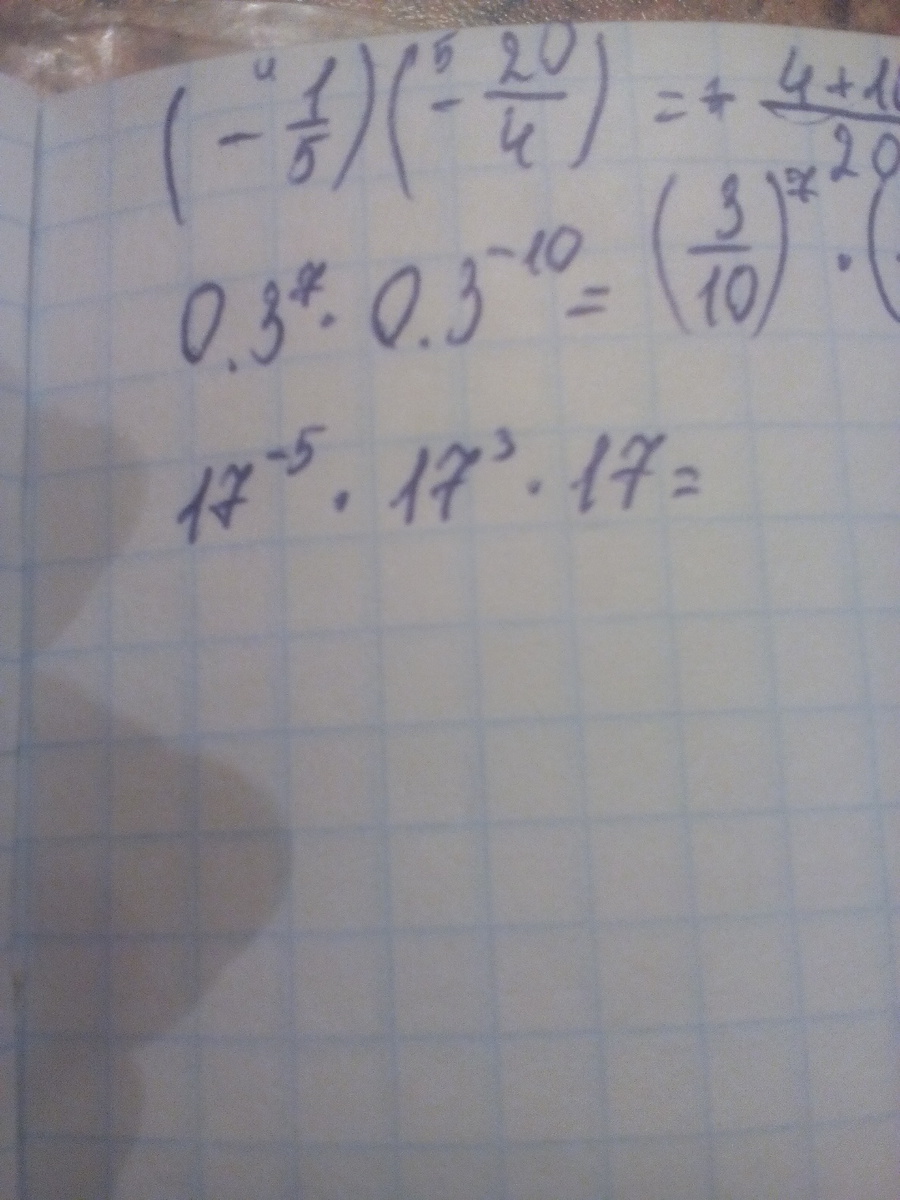 (-⁴ 1/5)(-⁵ 20/4) = + 4+10/20
0.3⁷ · 0.3⁻¹⁰ = (3/10)⁷ · (
17⁻⁵ · 17³ · 17 =